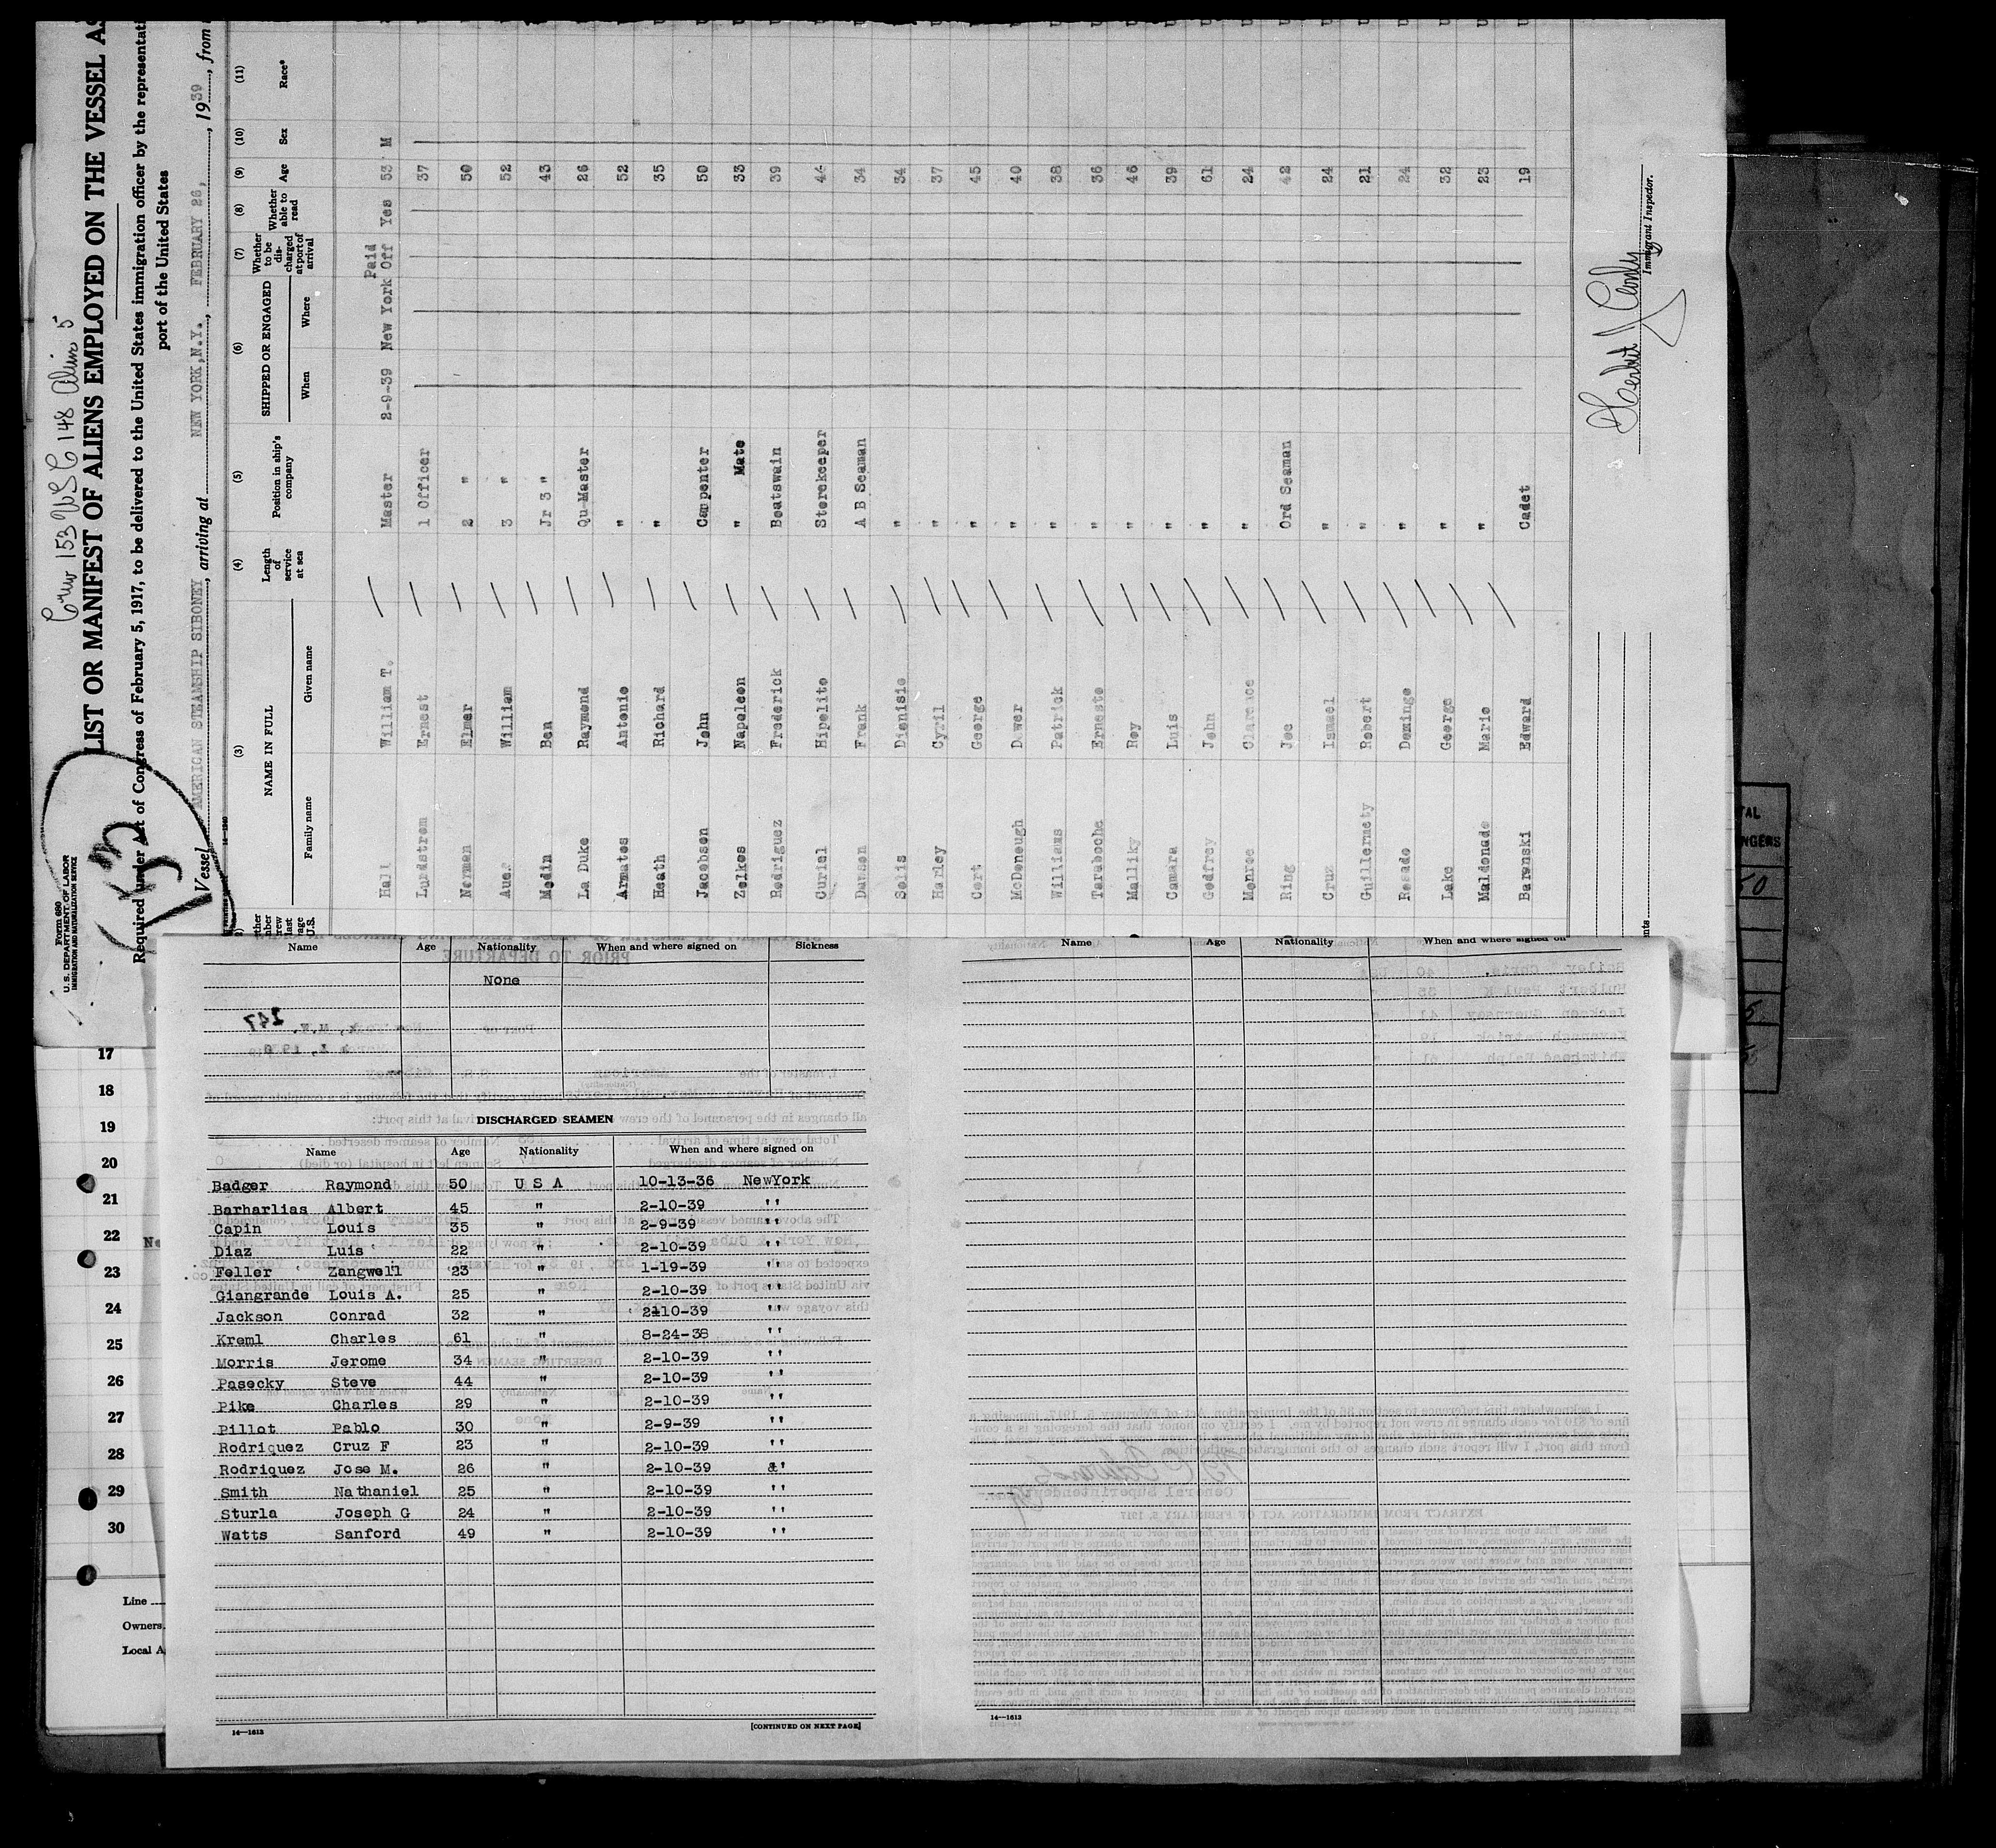 Crew 153 USC 148 Alien 5
Form 680
U.S. DEPARTMENT OF LABOR
IMMIGRATION AND NATURALIZATION SERVICE
LIST OR MANIFEST OF ALIENS EMPLOYED ON THE VESSEL AS
Required under Act of Congress of February 5, 1917, to be delivered to the United States immigration officer by the representati
port of the United States
Vessel AMERICAN STEAMSHIP SIBONEY, arriving at NEW YORK,N.Y. FEBRUARY 26, 1939, from
(3) (4) (5) (6) (7) (8) (9) (10) (11)
NAME IN FULL Length of service at sea Position in ship's company SHIPPED OR ENGAGED Whether to be discharged at port of arrival Whether able to read Age Sex Race*
Family name Given name When Where
Hall William T. Master 2-9-39 New York Paid Off Yes 53 M
Lundstrom Ernest 1 Officer 37
Norman Elmer 2 " 50
William 3 " 52
Modin Ben Jr 3 " 43
La Duke Raymond Qu-Master 26
Armates Antonio " 52
Heath Richard " 35
Jacobson John Carpenter 50
Zolkos Napoleon " Mate 33
Rodriguez Frederick Boatswain 39
Curiel Hipolito Storekeeper 44
Dawson Frank A B Seaman 34
Solis Dionisio " 34
Harley Cyril " 37
Cort George " 45
McDonough Dower " 40
Williams Patrick " 38
Taraboche Ernesto " 36
Malliky Roy " 46
Camara Luis " 39
Godfrey John " 61
Monroe Clarence " 24
Ring Joe Ord Seaman 42
Cruz Ismael " 24
Guillermety Robert " 21
Rosado Domingo " 24
Lake George " 32
Maldonado Mario " 23
Baranski Edward Cadet 19
Immigrant Inspector.
Name Age Nationality When and where signed on Sickness
None
DISCHARGED SEAMEN
Name Age Nationality When and where signed on
Badger Raymond 50 U S A 10-13-36 NewYork
Barharlias Albert 45 " 2-10-39 ''
Capin Louis 35 " 2-9-39 ''
Diaz Luis 22 " 2-10-39 ''
Feller Zangwell 23 " 1-19-39 ''
Giangrande Louis A. 25 " 2-10-39 ''
Jackson Conrad 32 " 2110-39 ''
Kreml Charles 61 " 8-24-38 ''
Morris Jerome 34 " 2-10-39 ''
Pasecky Steve 44 " 2-10-39 ''
Pike Charles 29 " 2-10-39 ''
Pillot Pablo 30 " 2-9-39 ''
Rodriquez Cruz F 23 " 2-10-39 ''
Rodriquez Jose M. 26 " 2-10-39 &'
Smith Nathaniel 25 " 2-10-39 ''
Sturla Joseph G 24 " 2-10-39 ''
Watts Sanford 49 " 2-10-39 ''
14—1613 [CONTINUED ON NEXT PAGE]
Name Age Nationality When and where signed on
14—1613
17
18
19
20
21
22
23
24
25
26
27
28
29
30
Line
Owners
Local A